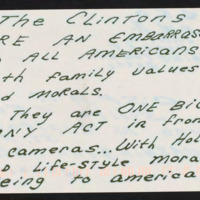 The Clintons
RE AN EMBARRAS
ALL AMERICANS
th family values
d morals.
They are ONE Bi
NY ACT in fron
cameras... With Hol
D Life-style mora
eing to america